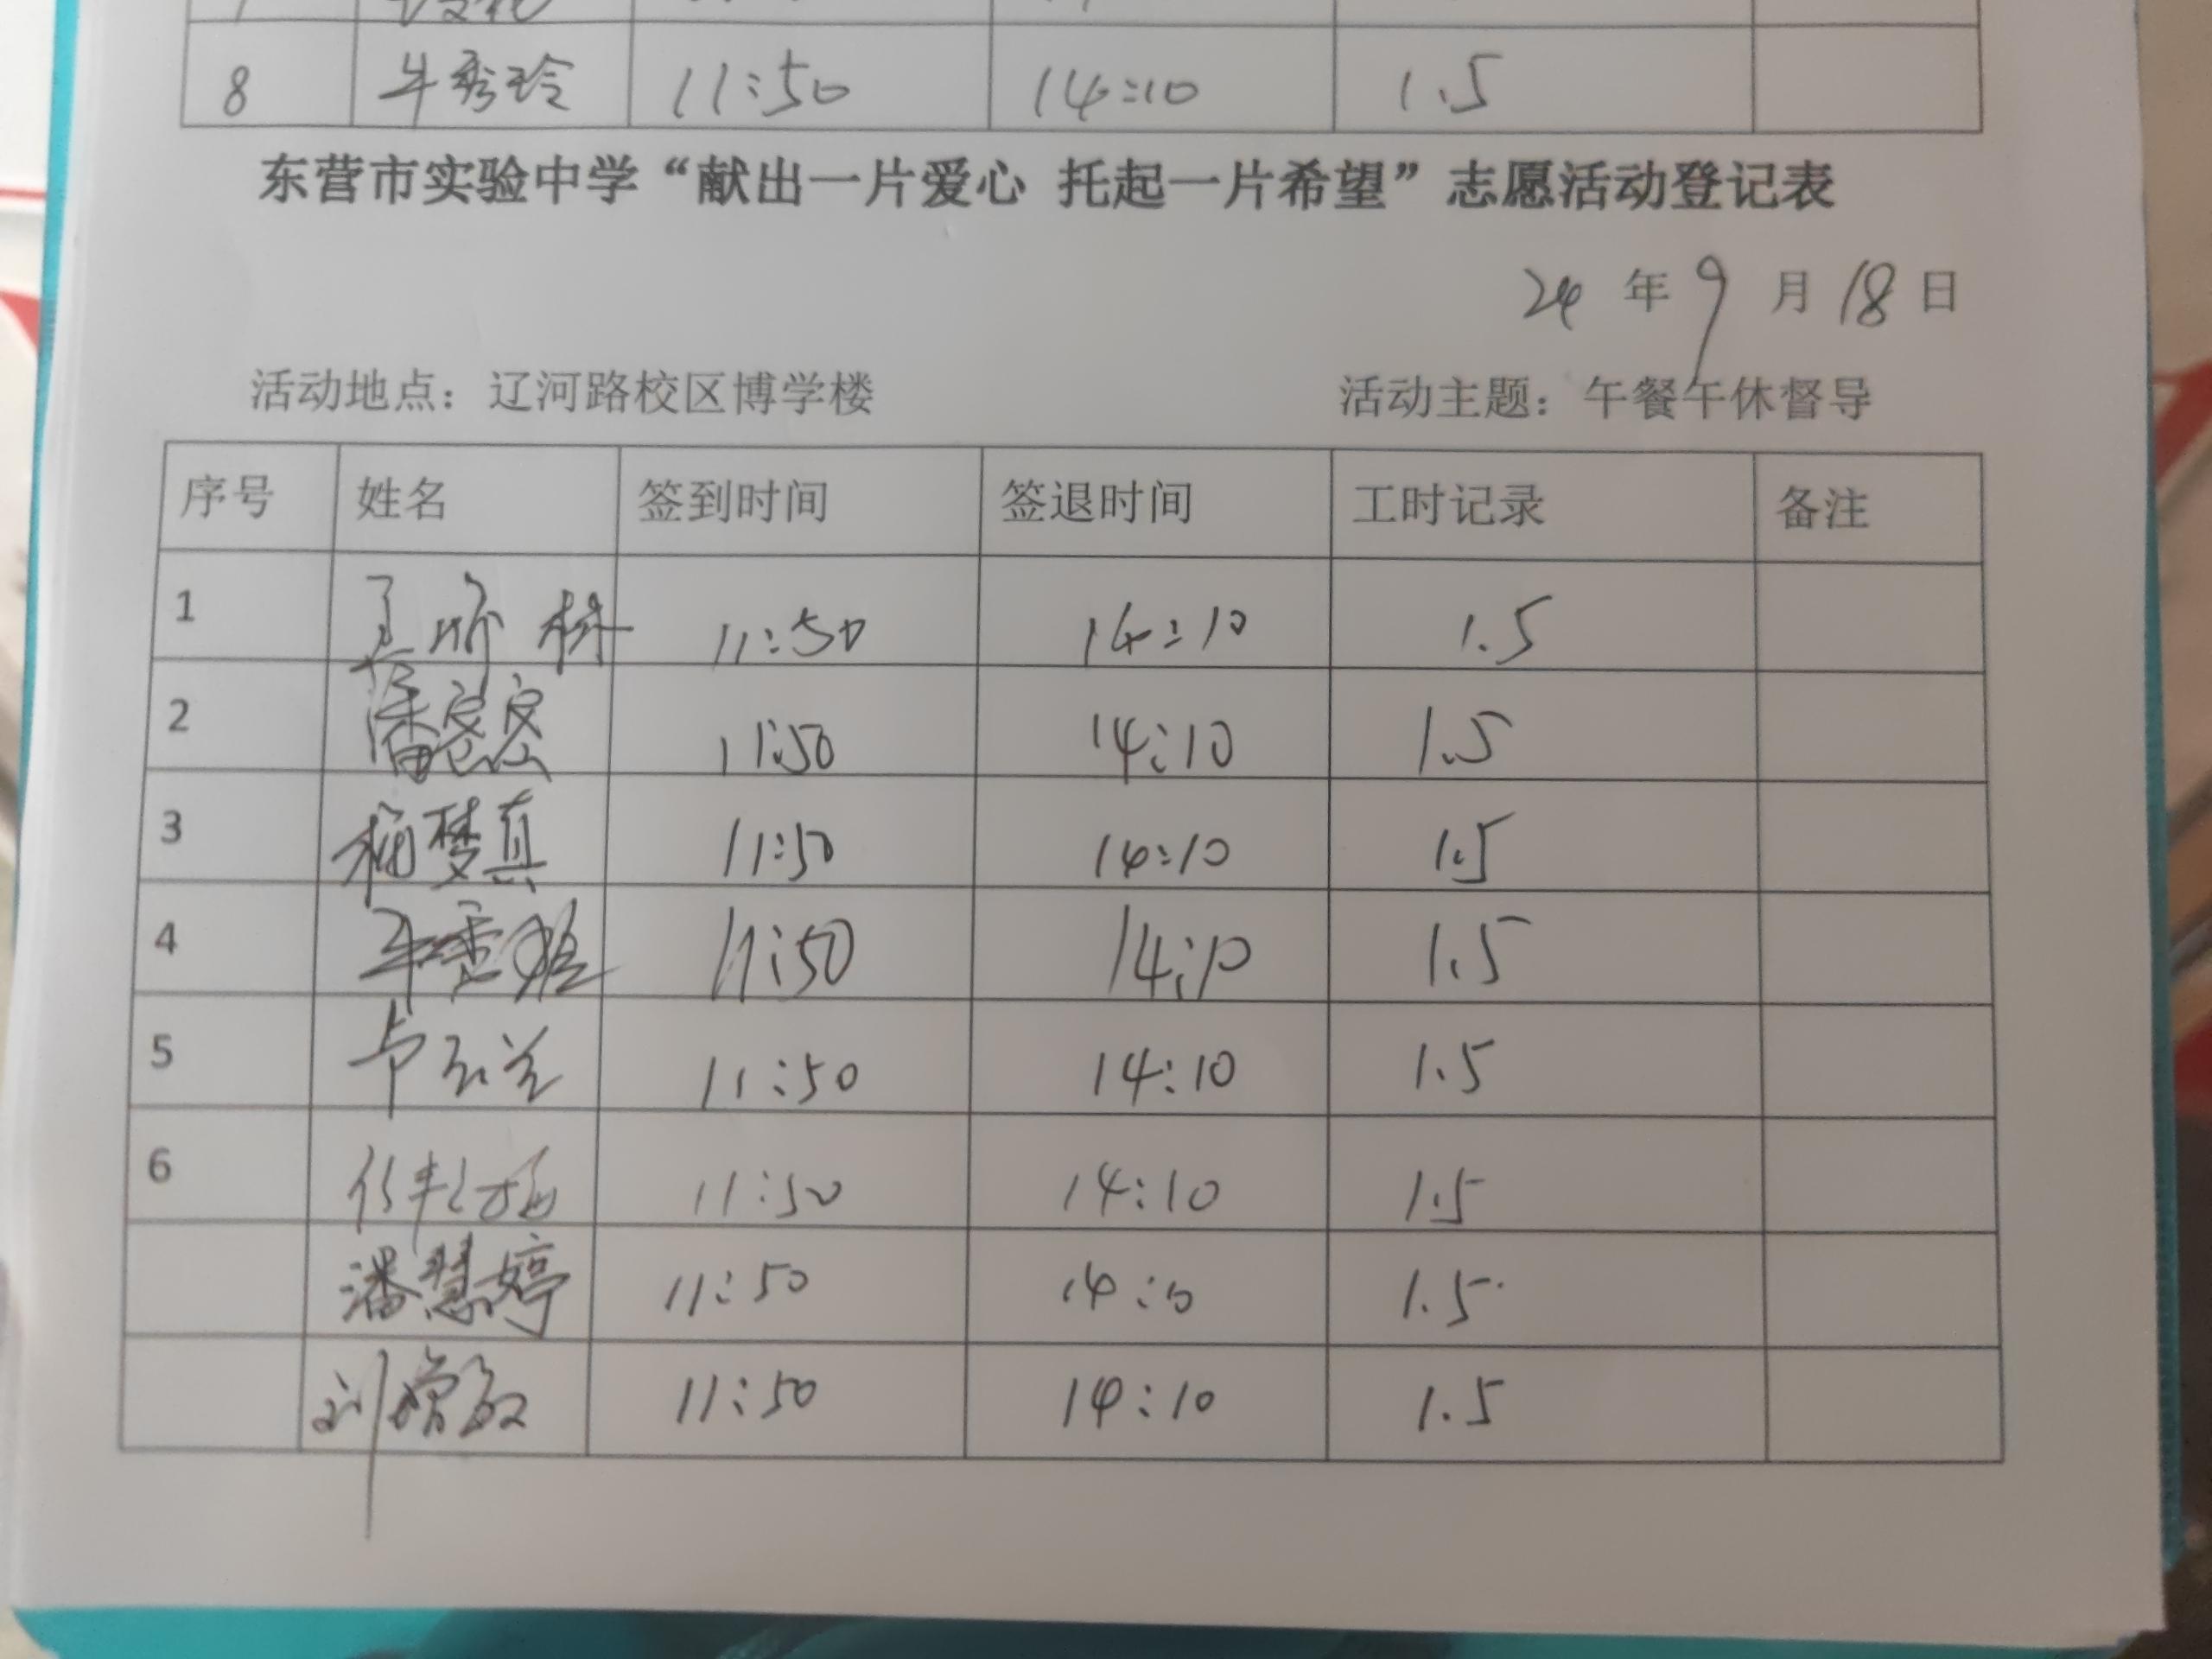 8 牛秀玲 11:50 14:10 1.5
东营市实验中学“献出一片爱心 托起一片希望”志愿活动登记表
24 年 9 月 18 日
活动地点：辽河路校区博学楼 活动主题：午餐午休督导
序号 姓名 签到时间 签退时间 工时记录 备注
1 11:50 14:10 1.5
2 潘密密 11:50 14:10 1.5
3 梦真 11:50 14:10 1.5
4 11:50 14:10 1.5
5 11:50 14:10 1.5
6 11:50 14:10 1.5
潘慧婷 11:50 14:10 1.5
刘增敏 11:50 14:10 1.5